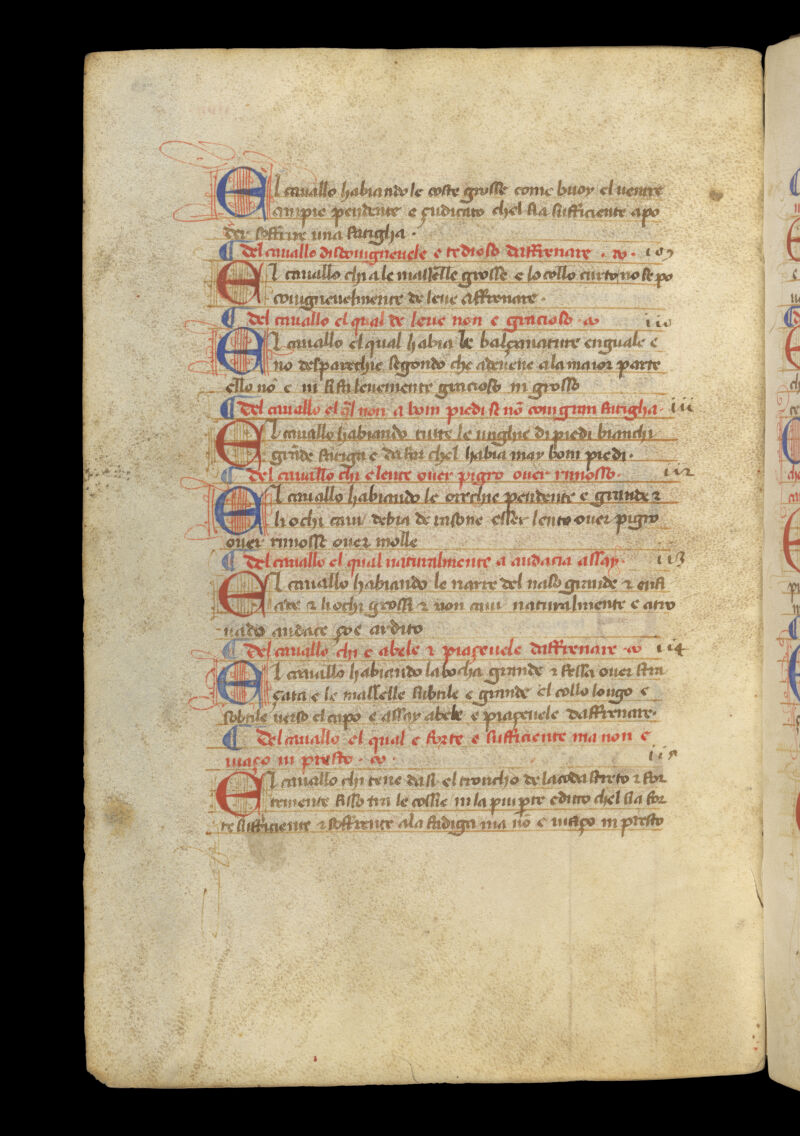 El cauallo habiando le coste grosse come buoy el uentre
ampio pendente e çudicato chel sia sufficiente apo
der soffrire una fatigha ·
¶ Del cauallo disconigneuele e tedioso daffrenare · 109
El cauallo chi a le masselle grosse e lo collo curto no se po
conigneuelmente de leue affrenare ·
¶ Del cauallo el qual de leue non e gracioso 110
El cauallo el qual habia le balçanature enguale e
no desparechie segondo che adeuene a la maior parte
ello nō e ni si fa leuemente gracioso in grosso
¶ Del cauallo el q̄l non a bom piedi se nō con gran fatigha · 111
El cauallo habiando tutte le unghie di piedi bianchi
grāde fatiga e da far chel habia may bom piedi ·
¶ Del cauallo chi e lento ouer pigro ouer rimosso · 112
El cauallo habiando le orechie pendente e grande ⁊
li ochi caui debia de rasone esser lento ouer pigro
ouer rimosse ouer molle
¶ Del cauallo el qual naturalmente a audacia assay · 113
El cauallo habiando le narre del naso grande ⁊ enfi
ate ⁊ li ochi grossi ⁊ non caui naturalmente e atro
uado audace çoe ardito
¶ Del cauallo chi e abele ⁊ piaçeuele daffrenare 114
El cauallo habiando la bocha grande ⁊ fessa ouer stra
çata e le masselle subtile e grande el collo longo e
sobtile uerso el capo e assay abele e piaçeuele daffrenare ·
¶ Del cauallo el qual e forte e sufficiente ma non e
uiaço in presto · 115
El cauallo chi tene da si el troncho de la coda streto ⁊ for
temente fisso tra le cossie in la piu pte e ditto chel sia for
te sufficiente ⁊ soffrente a la fadiga ma nō e uiaço in presto